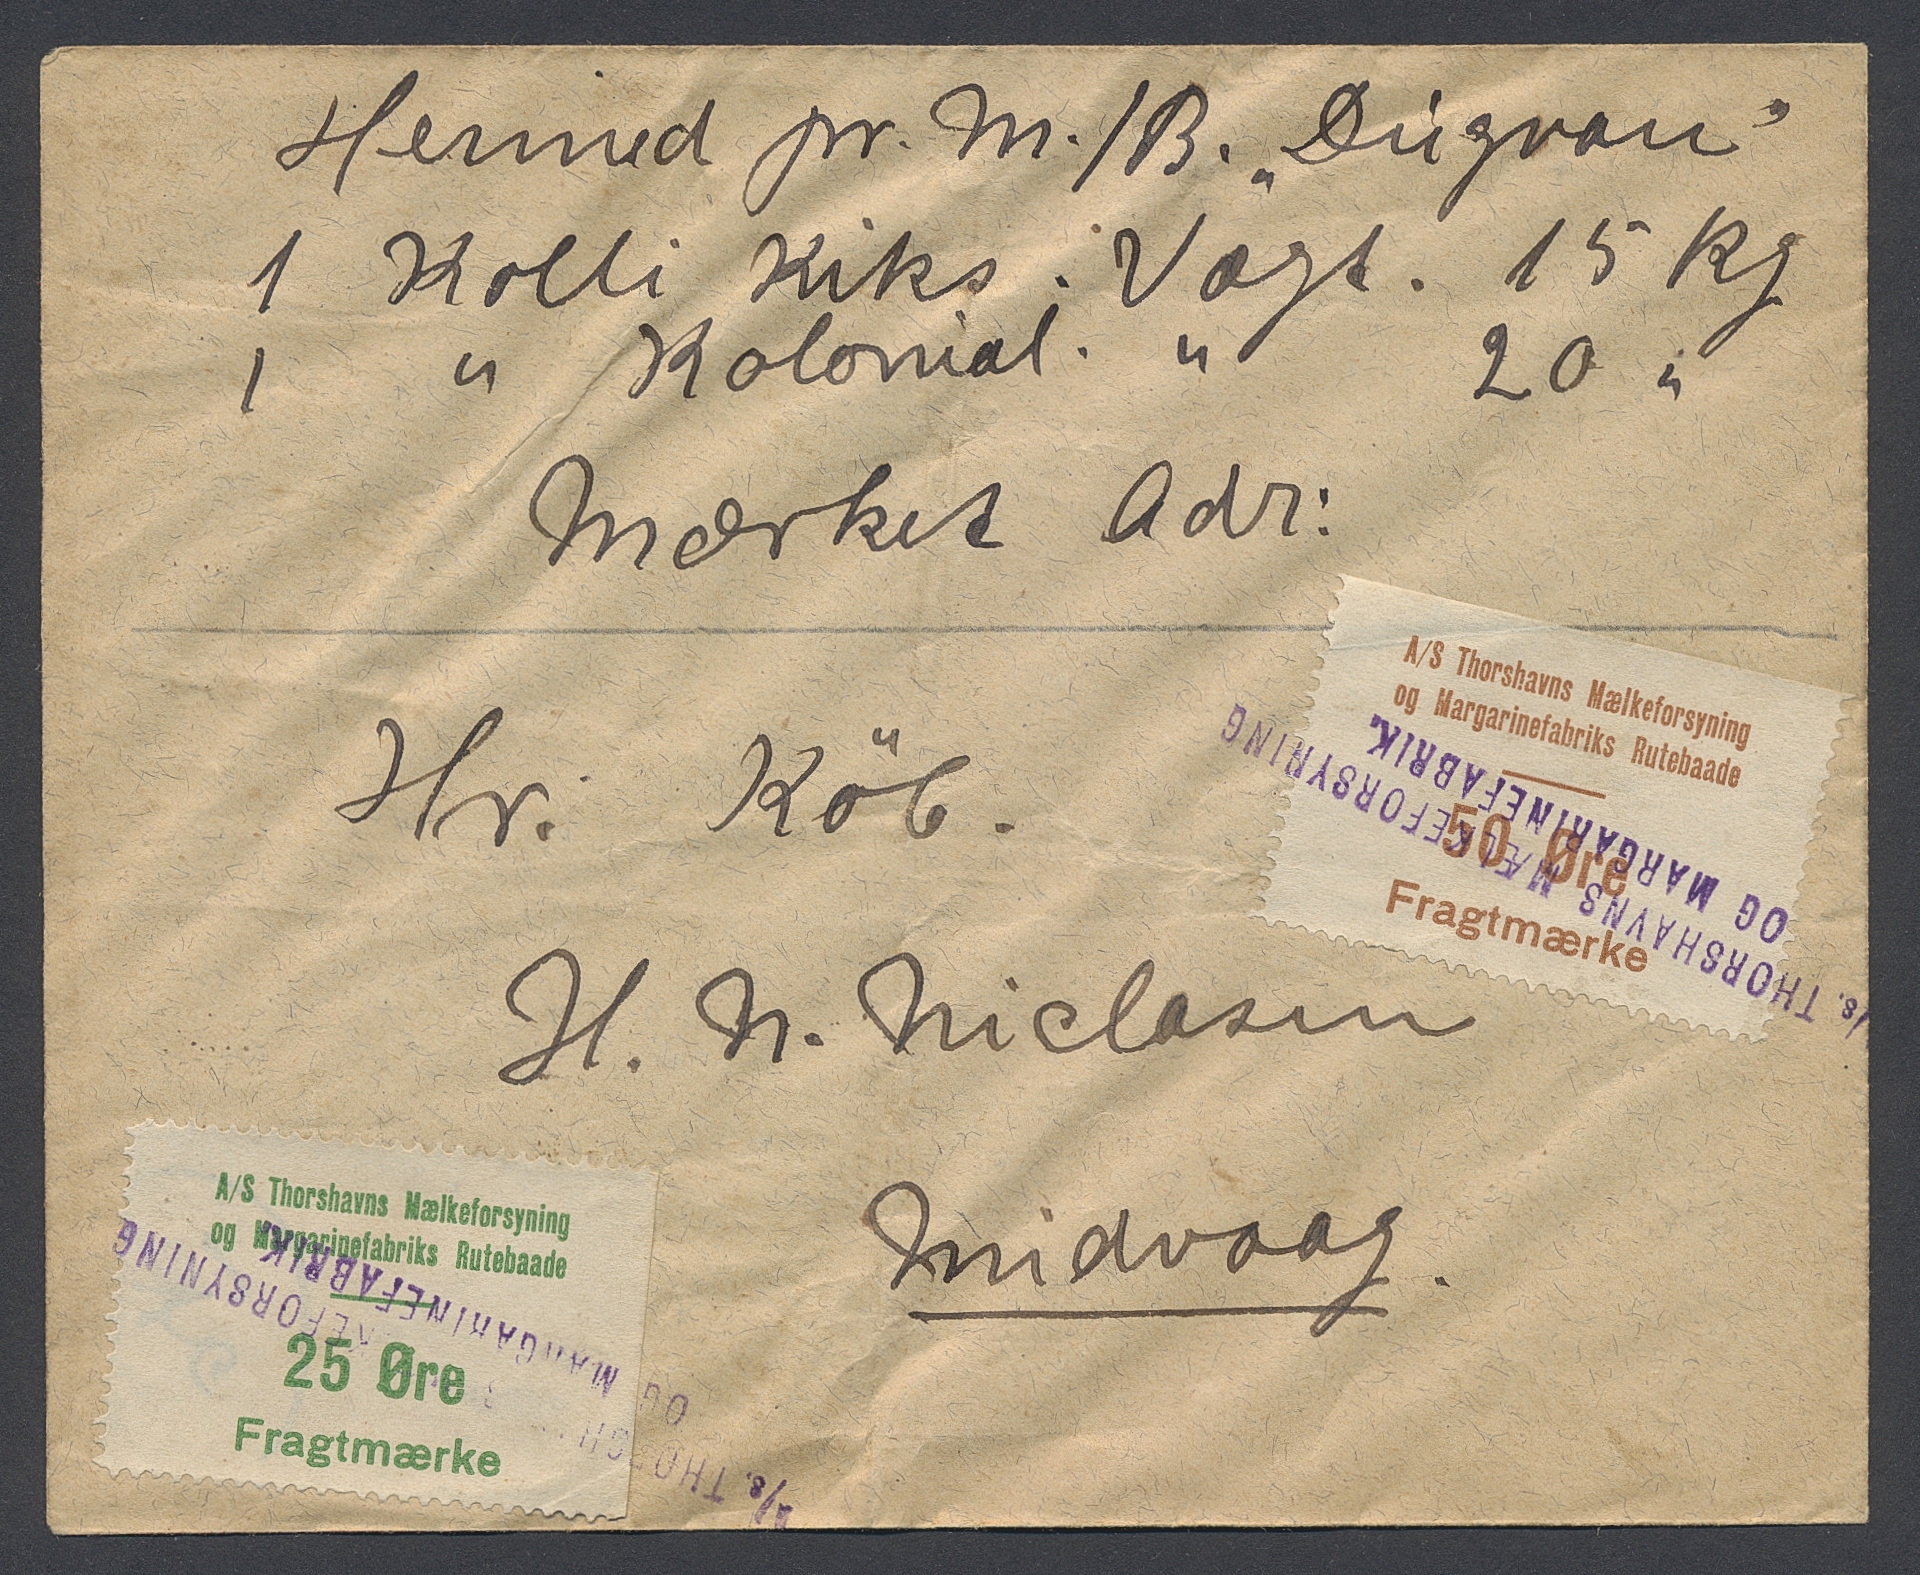 Hermed pr. M./B. „Dúgvan”
1 Kolli Kiks. Vægt. 15 Kg
1 " Kolonial. " 20 "
Mærket Adr:
A/S Thorshavns Mælkeforsyning
og Margarinefabriks Rutebaade
50 Øre
Fragtmærke
A/S. THORSHAVNS MÆLKEFORSYNING
OG MARGARINEFABRIK.
Hr. Köb.
H. N. Niclasen
Midvaag.
A/S Thorshavns Mælkeforsyning
og Margarinefabriks Rutebaade
25 Øre
Fragtmærke
A/S. THORSHAVNS MÆLKEFORSYNING
OG MARGARINEFABRIK.